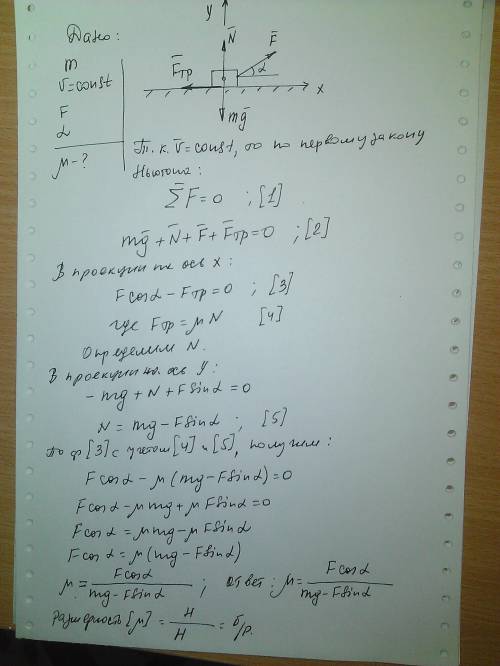 Дано:
m
v=const
F
α
μ-?
y
N̄
F̄
F̄тр
α
x
mḡ
Т.к. v̄=const, то по первому закону
Ньютона:
ΣF̄=0 ; [1]
mḡ+N̄+F̄+F̄тр=0 ; [2]
В проекции на ось x:
Fcosα-Fтр=0 ; [3]
где Fтр=μN [4]
Определим N.
В проекции на ось y:
-mg+N+Fsinα=0
N=mg-Fsinα ; [5]
По ф [3] с учетом [4] и [5], получим:
Fcosα-μ(mg-Fsinα)=0
Fcosα-μmg+μFsinα=0
Fcosα=μmg-μFsinα
Fcosα=μ(mg-Fsinα)
μ=Fcosα/(mg-Fsinα) ; Ответ: μ=Fcosα/(mg-Fsinα)
Размерность [μ]=Н/Н=б/р.